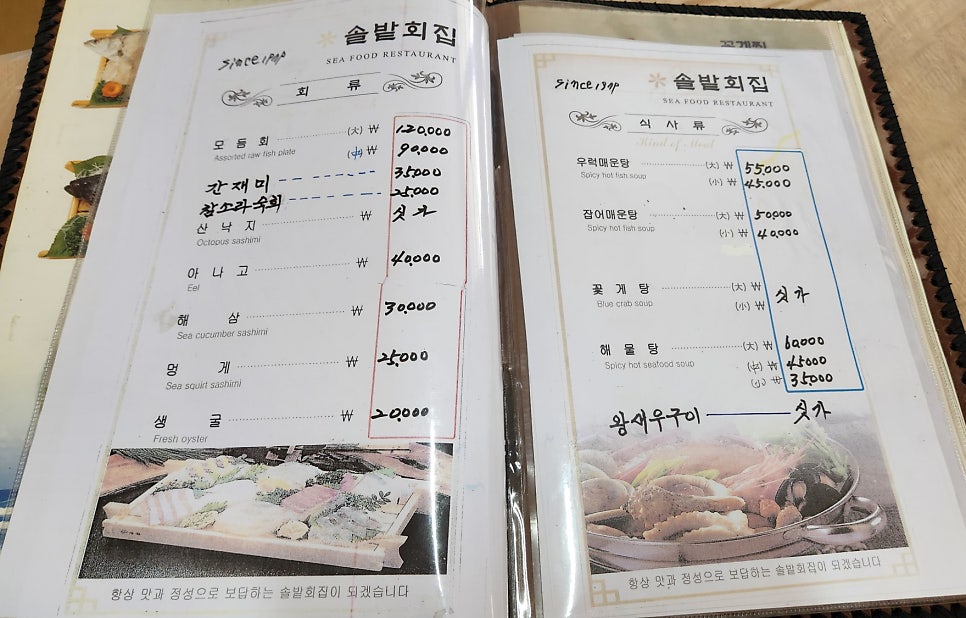 솔밭회집
SEA FOOD RESTAURANT
회 류
모 듬 회 (大) ₩ 120,000
Assorted raw fish plate (中) ₩ 90,000
간재미 35,000
참소라숙회 25,000
산 낙 지 ₩ 싯가
Octopus sashimi
아 나 고 ₩ 40,000
Eel
해 삼 ₩ 30,000
Sea cucumber sashimi
멍 게 ₩ 25,000
Sea squirt sashimi
생 굴 ₩ 20,000
Fresh oyster
항상 맛과 정성으로 보답하는 솔밭회집이 되겠습니다
꽃게찜
since
솔밭회집
SEA FOOD RESTAURANT
식 사 류
Kind of Meal
우럭매운탕 (大) ₩ 55,000
Spicy hot fish soup (小) ₩ 45,000
잡어매운탕 (大) ₩ 50,000
Spicy hot fish soup (小) ₩ 40,000
꽃 게 탕 (大) ₩ 싯가
Blue crab soup (小) ₩
해 물 탕 (大) ₩ 60,000
Spicy hot seafood soup (中) ₩ 45000
(小) ₩ 35,000
왕새우구이 싯가
항상 맛과 정성으로 보답하는 솔밭회집이 되겠습니다